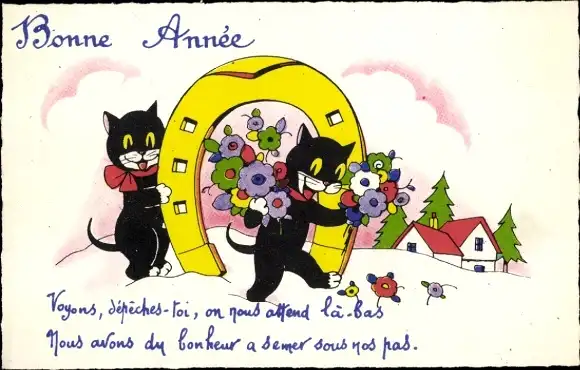 Bonne Année
Voyons, dépèches-toi, on nous attend là-bas
Nous avons du bonheur a semer sous nos pas.